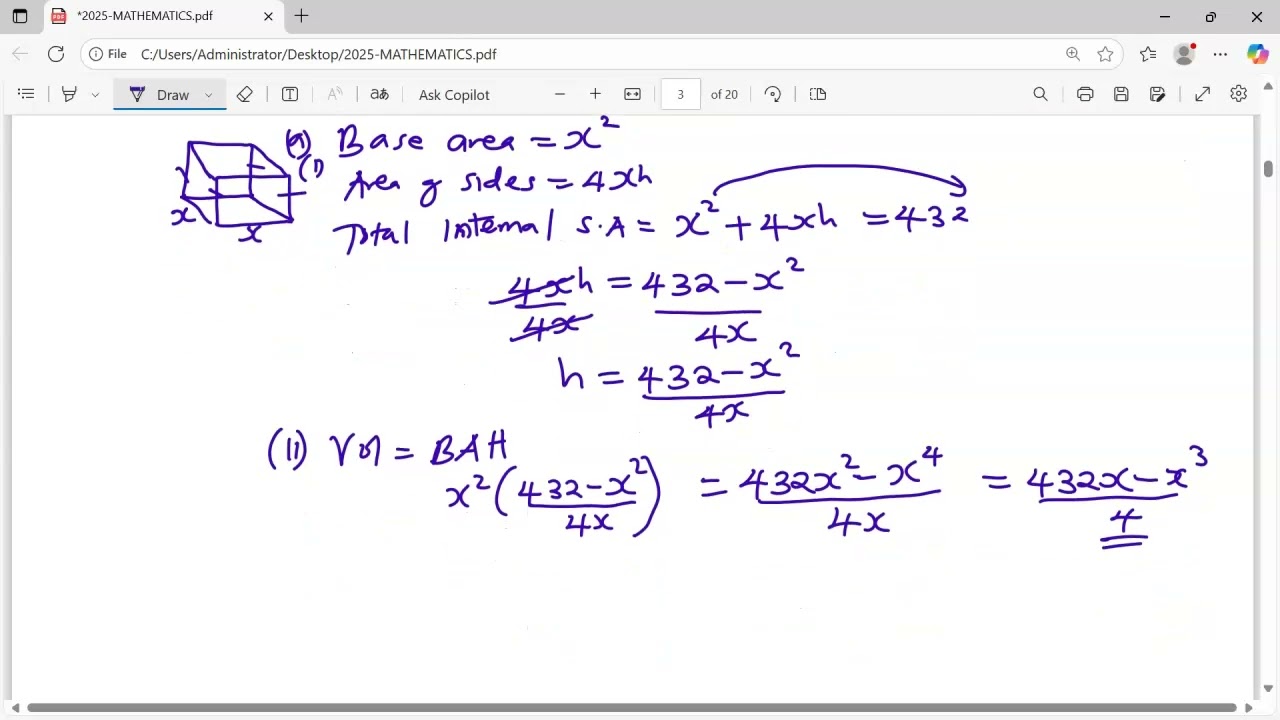 *2025-MATHEMATICS.pdf
File C:/Users/Administrator/Desktop/2025-MATHEMATICS.pdf
Draw Ask Copilot 3 of 20
(a) Base area = x²
(i) Area of sides = 4xh
Total Internal S.A = x² + 4xh = 432
4xh/4x = (432 - x²)/4x
h = (432 - x²)/4x
x
x
(ii) Vol = BAH
x²((432 - x²)/4x) = (432x² - x⁴)/4x = (432x - x³)/4